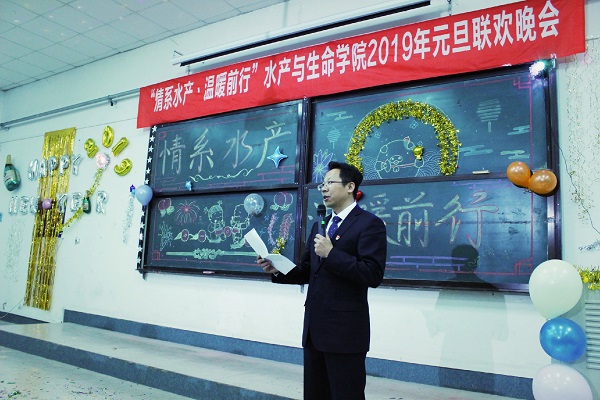 “情系水产·温暖前行”水产与生命学院2019年元旦联欢晚会
情系水产
暖前行
HAPPY
NEW YEAR